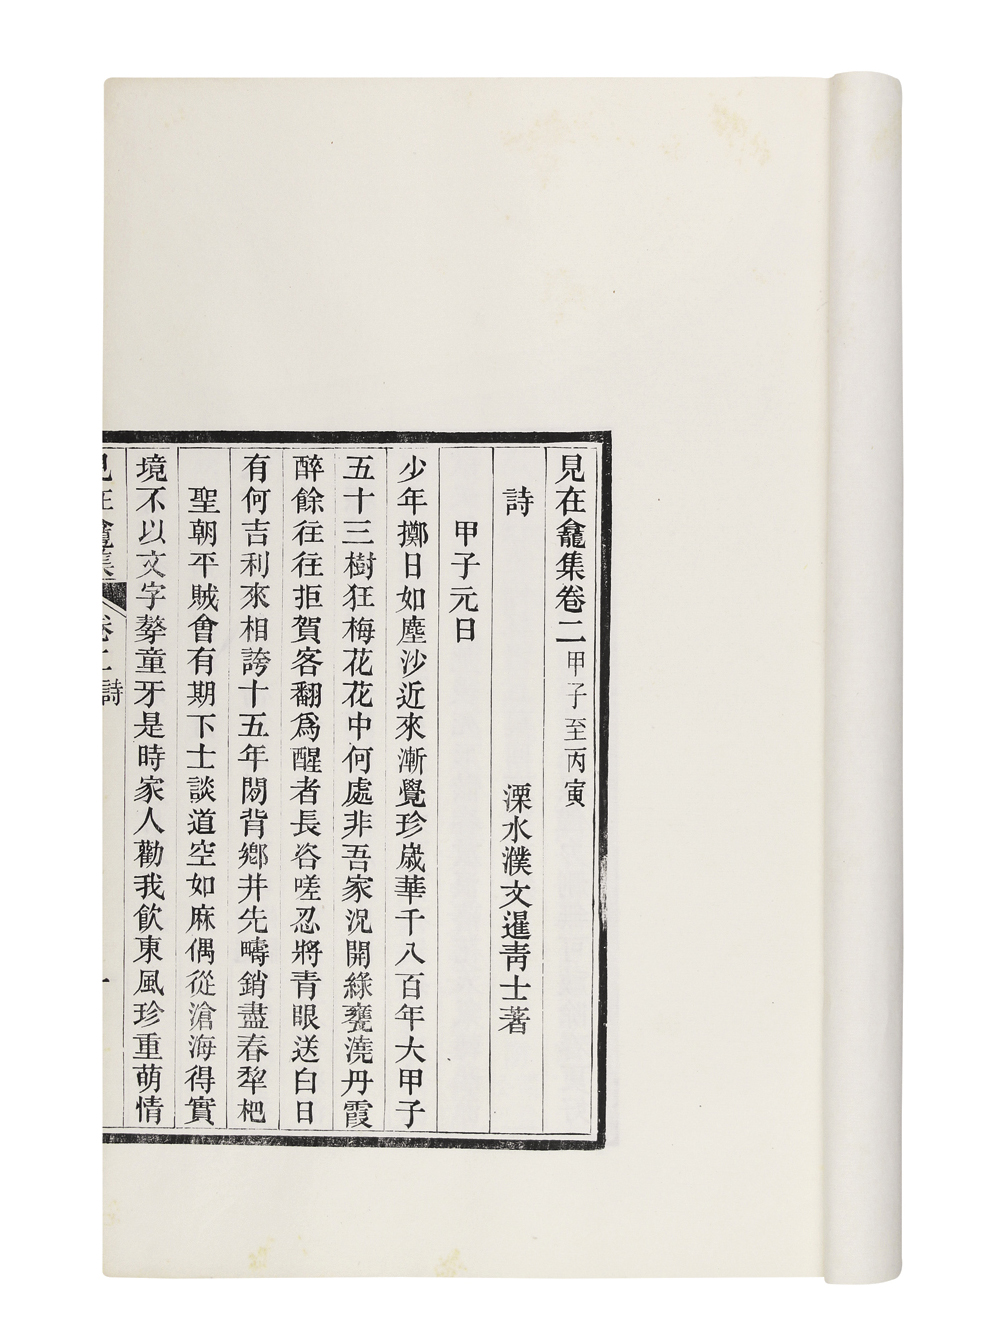 見在龕集卷二甲子至丙寅
詩 溧水濮文暹靑士著
甲子元日
少年擲日如塵沙近來漸覺珍歲華千八百年大甲子
五十三樹狂梅花花中何處非吾家況開綠甕澆丹霞
醉餘往往拒賀客翻爲醒者長咨嗟忍將青眼送白日
有何吉利來相誇十五年閒背鄉井先疇銷盡春犂杷
聖朝平賊會有期下士談道空如麻偶從滄海得實
境不以文字摹童牙是時家人勸我飲東風珍重萌情
見在龕集 卷二 詩 一